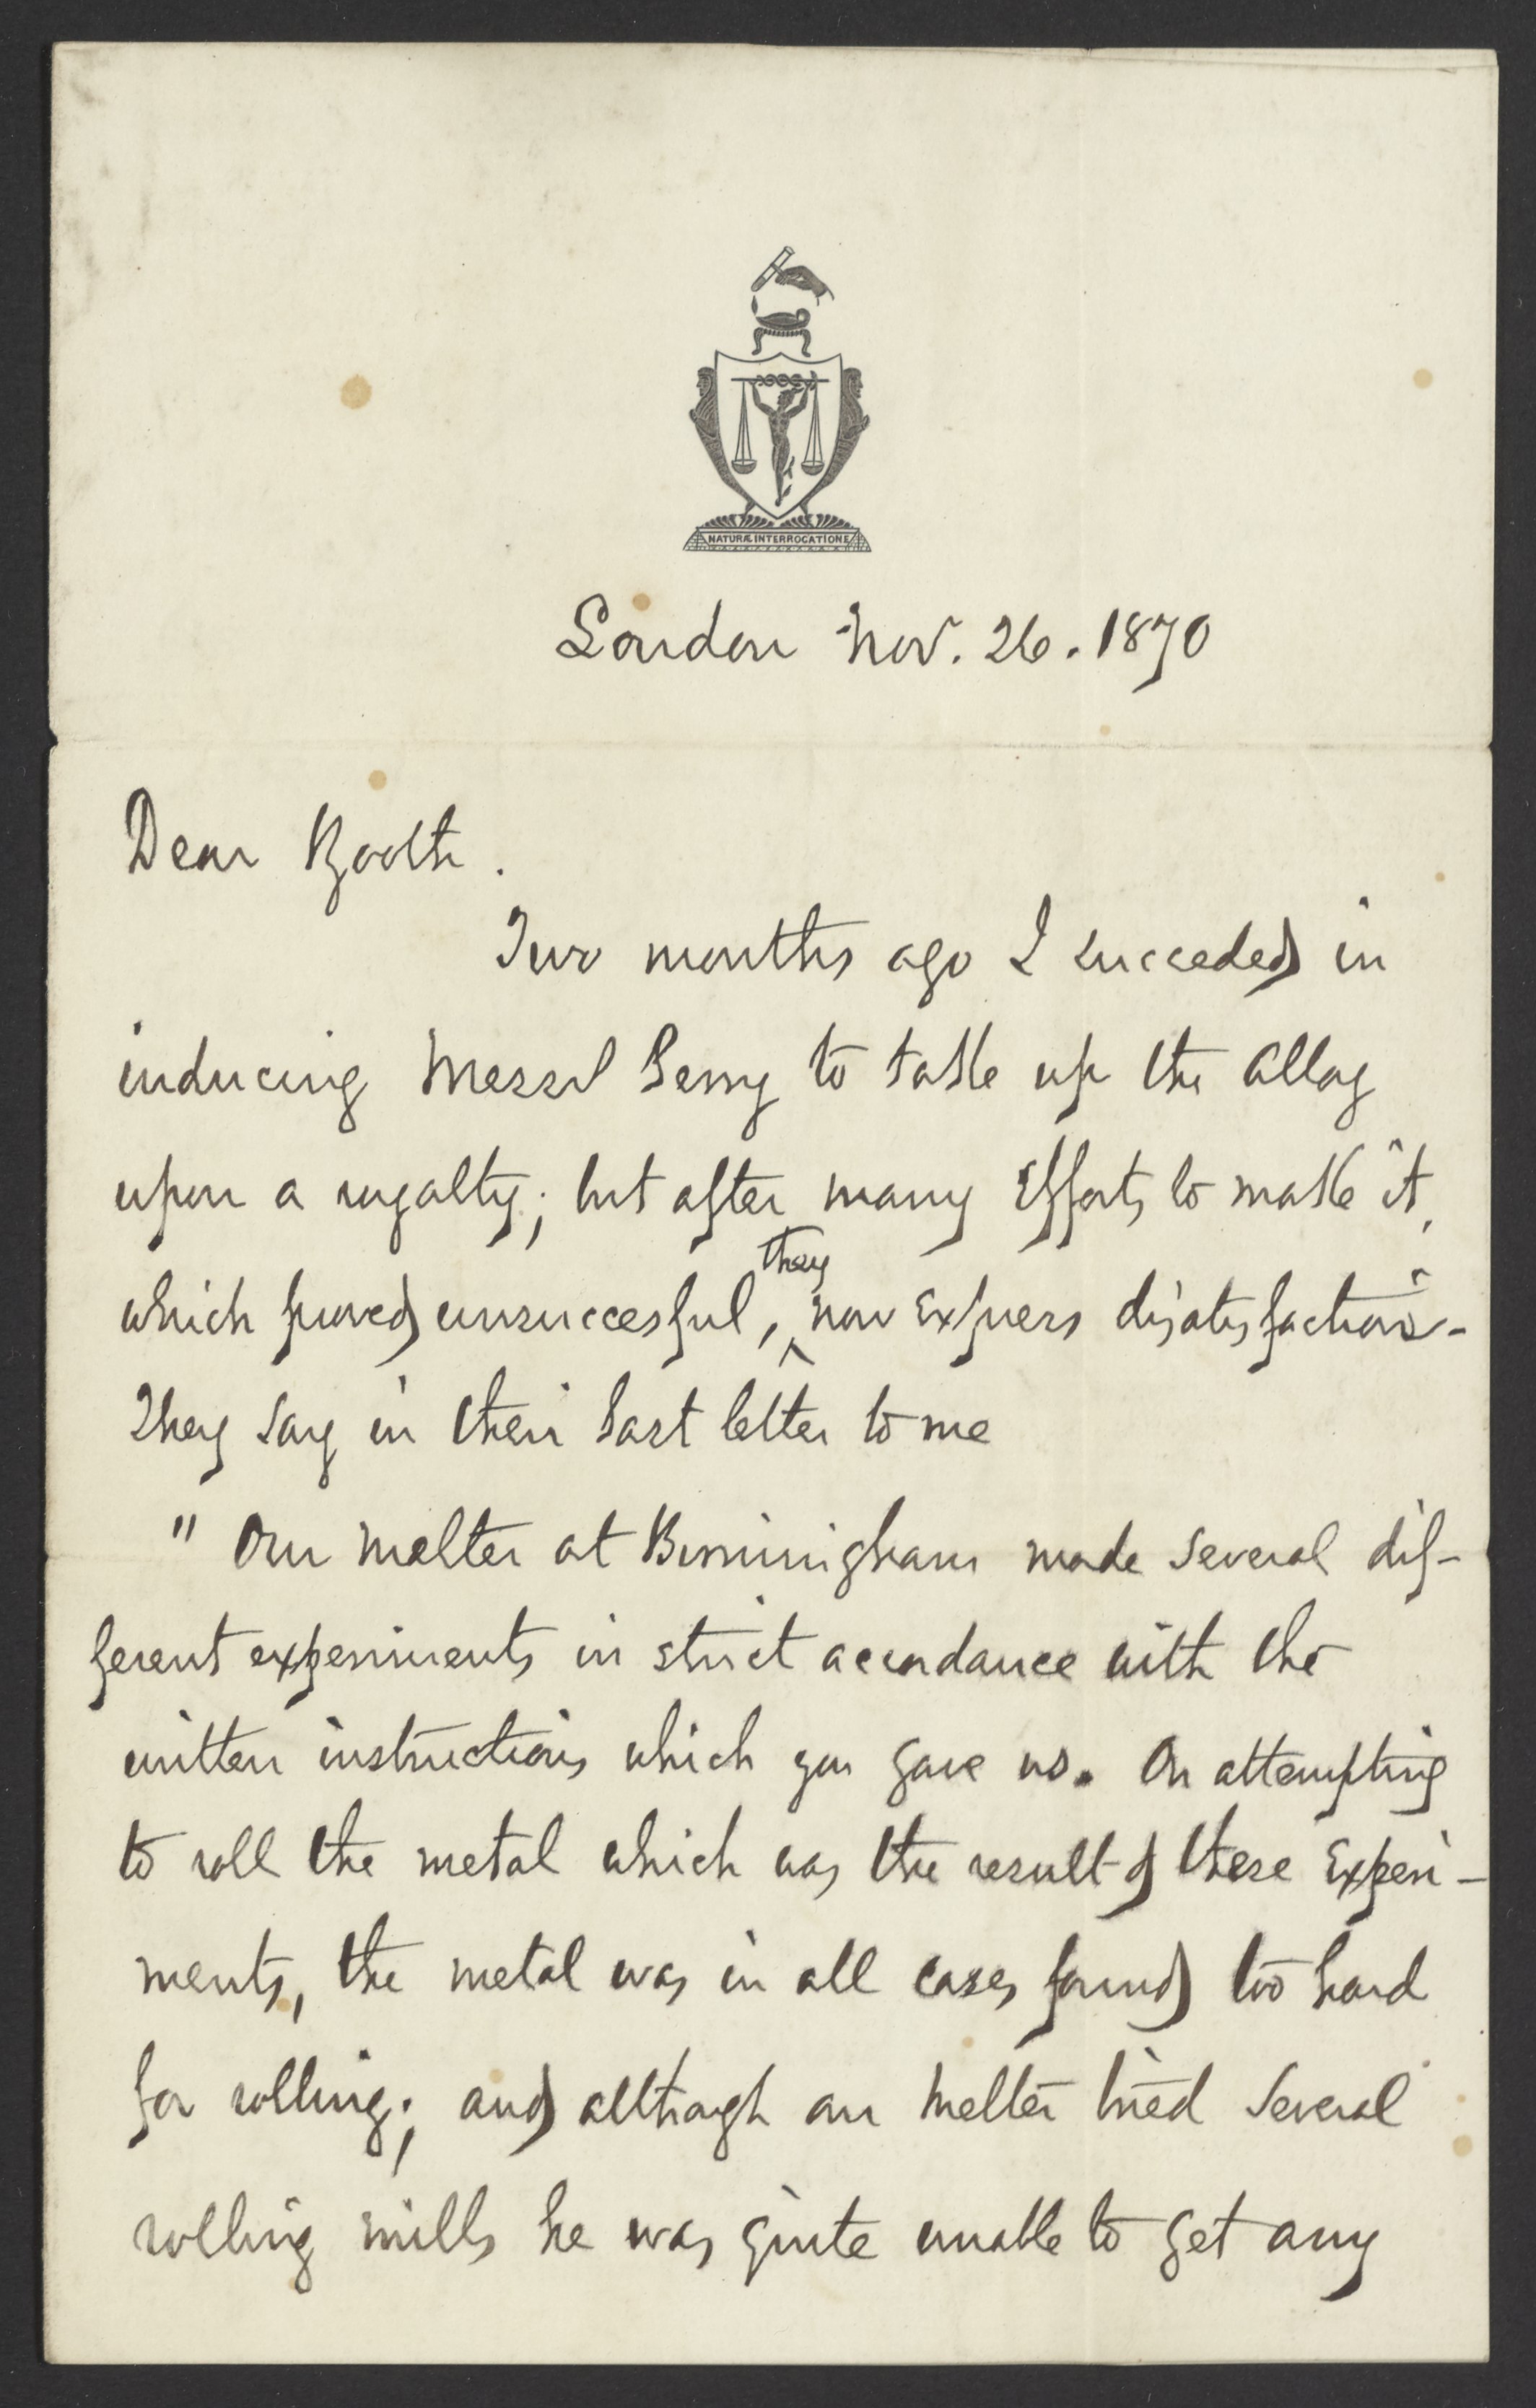 NATURÆ INTERROGATIONE
London Nov. 26. 1870
Dear Booth.
Two months ago I succeded in
inducing Messrs Perry to take up the alloy
upon a royalty; but after many Efforts to make it,
which proved unsuccesful, they now Express disatisfaction-
They say in their last letter to me
" Our melter at Birmingham made several dif-
ferent experiments in strict accordance with the
written instructions which you gave us. On attempting
to roll the metal which was the result of these Experi-
ments, the metal was in all cases found too hard
for rolling; and although our melter tried several
rolling mills he was quite unable to get any